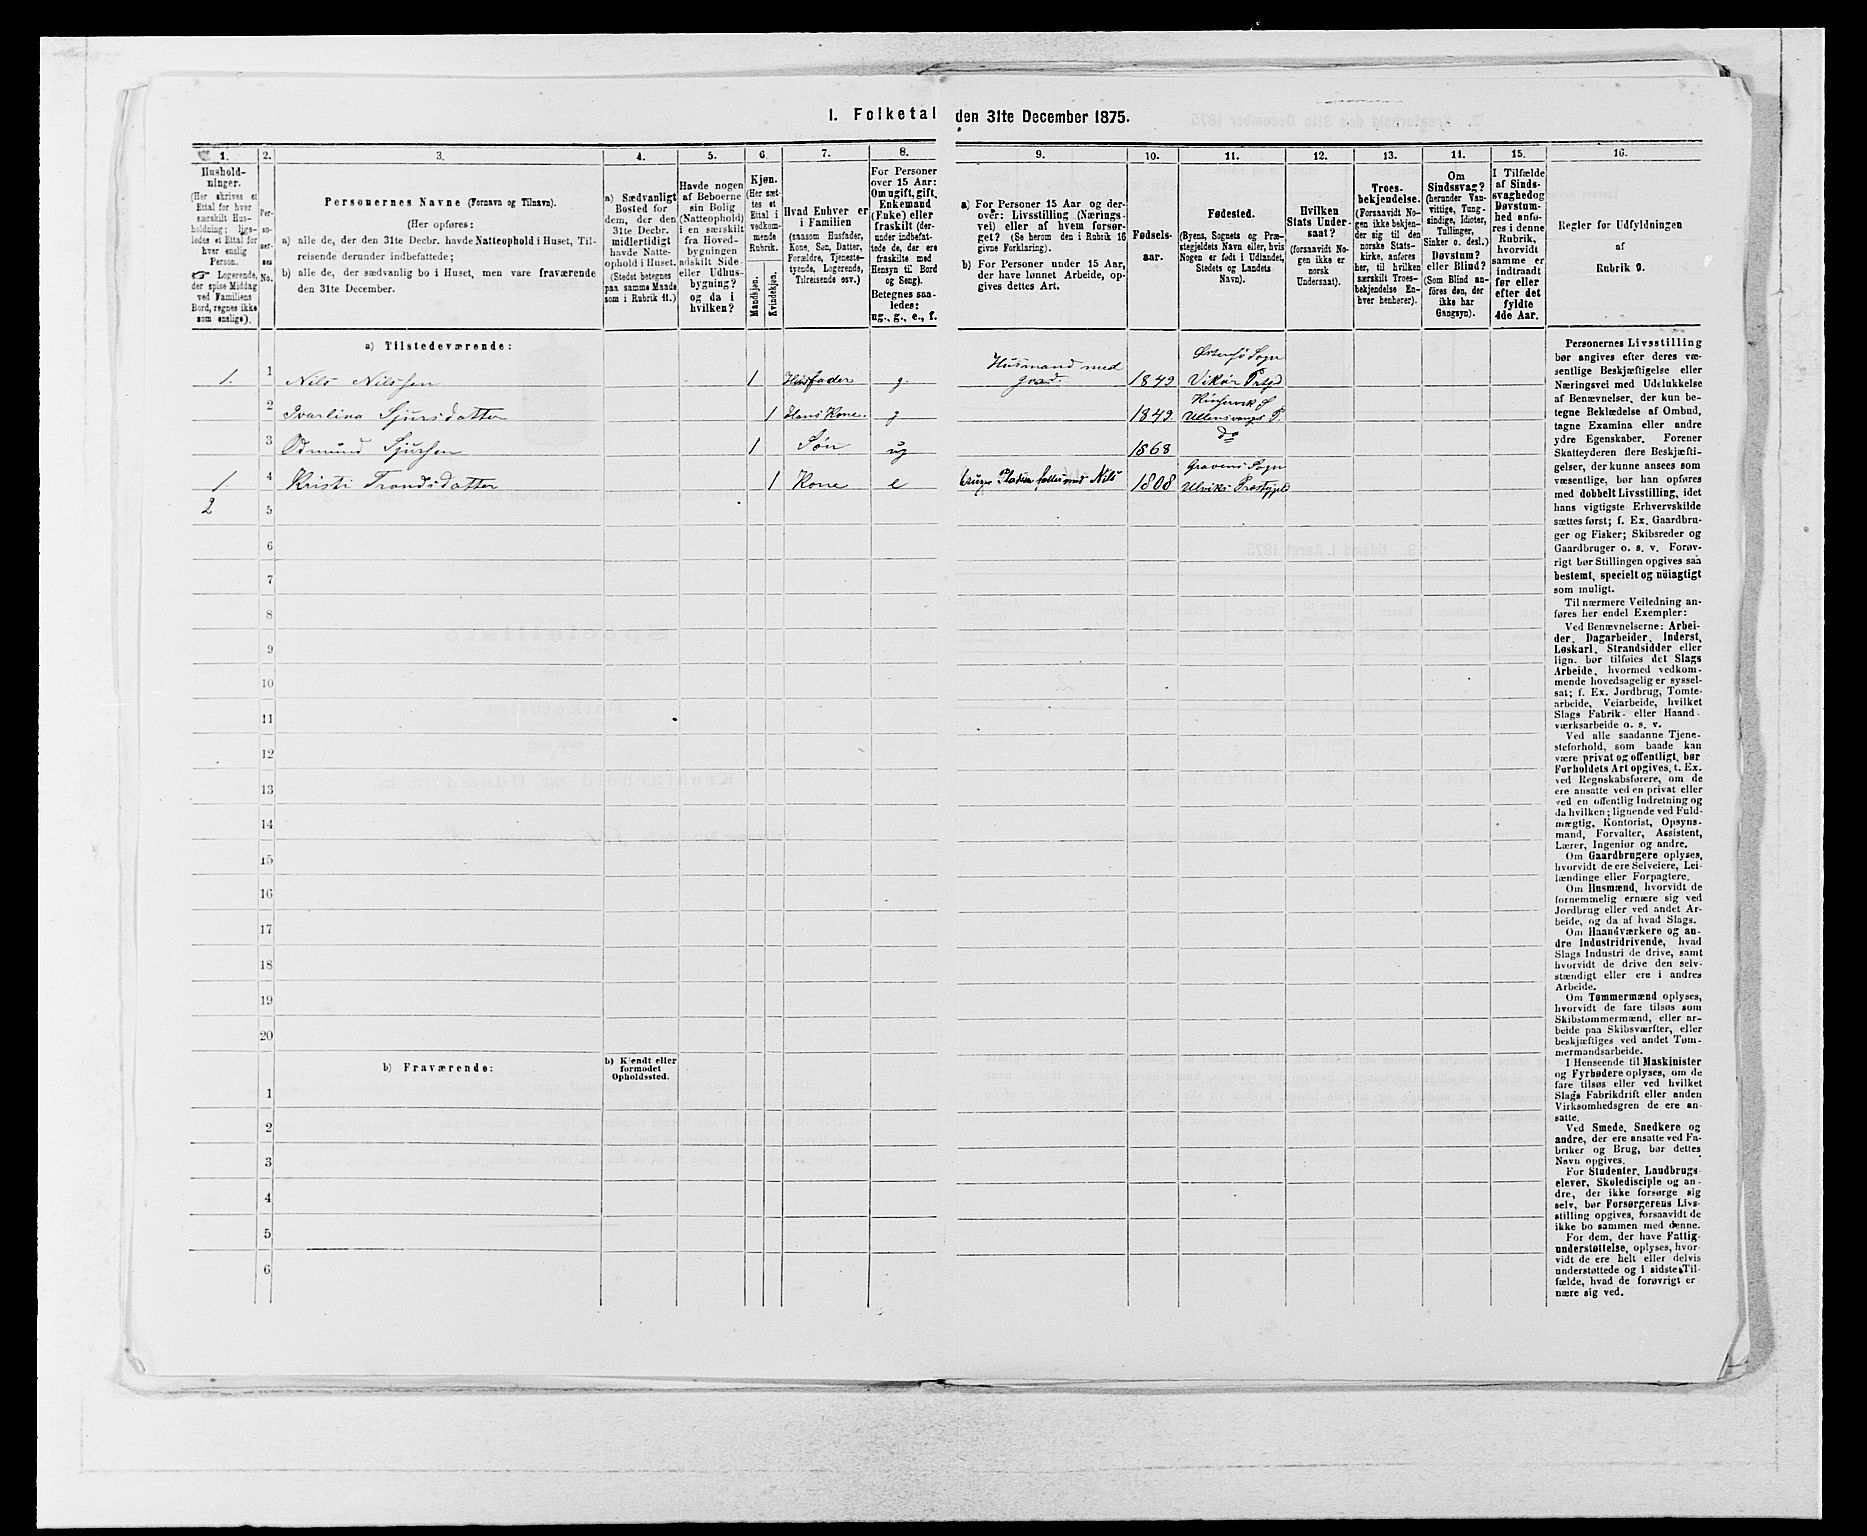 I. Folketal den 31te December 1875.
1. 2. 3. 4. 5. 6. 7. 8. 9. 10. 11. 12. 13. 14. 15. 16.
Hushold-
ninger.
(Her skrives et
Ettal for hver
særskilt Hus-
holdning; lige-
ledes et Ettal for
hver enslig
Person.
☞ Logerende,
der spise Middag
ved Familiens
Bord, regnes ikke
som enslige).
Per-
so-
ner-
nes
No.
Personernes Navne (Fornavn og Tilnavn).
(Her opføres:
a) alle de, der den 31te Decbr. havde Natteophold i Huset, Til-
reisende derunder indbefattede;
b) alle de, der sædvanlig bo i Huset, men vare fraværende
den 31te December.
a) Sædvanligt
Bosted for
dem, der den
31te Decbr.
midlertidigt
havde Natte-
ophold i Huset.
(Stedet betegnes
paa samme Maade
som i Rubrik 11.)
Havde nogen
af Beboerne
sin Bolig
(Natteophold)
i en særskilt
fra Hoved-
bygningen
adskilt Side-
eller Udhus-
bygning?
og da i
hvilken?
Kjøn.
(Her sæt-
tes et
Ettal i
vedkom-
mende
Rubrik.
Mandkjøn.
Kvindekjøn.
Hvad Enhver er
i Familien
(saasom Husfader,
Kone, Søn, Datter,
Forældre, Tjeneste-
tyende, Logerende,
Tilreisende osv.)
For Personer
over 15 Aar:
Om ugift, gift,
Enkemand
(Enke) eller
fraskilt (der-
under indbefat-
tede de, der ere
fraskilte med
Hensyn til Bord
og Seng).
Betegnes saa-
ledes:
ug., g., e., f.
a) For Personer 15 Aar og der-
over: Livsstilling (Nærings-
vei) eller af hvem forsør-
get? (Se herom den i Rubrik 16
givne Forklaring).
b) For Personer under 15 Aar,
der have lønnet Arbeide, op-
gives dettes Art.
Fødsels-
aar.
Fødested.
(Byens, Sognets og Præ-
stegjeldets Navn eller, hvis
Nogen er født i Udlandet,
Stedets og Landets
Navn).
Hvilken
Stats Under-
saat?
(forsaavidt No-
gen ikke er
norsk
Undersaat).
Troes-
bekjendelse.
(Forsaavidt No-
gen ikke bekjen-
der sig til den
norske Stats-
kirke, anføres
her, til hvilken
særskilt Troes-
bekjendelse En-
hver henhører).
Om
Sindssvag?
(herunder Van-
vittige, Tung-
sindige, Idioter,
Sinker o. desl.)
Døvstum?
eller Blind?
(Som Blind an-
føres den, der
ikke har
Gangsyn).
I Tilfælde
af Sinds-
svaghed og
Døvstum-
hed anfø-
res i denne
Rubrik,
hvorvidt
samme er
indtraadt
før eller
efter det
fyldte
4de Aar.
Regler for Udfyldningen
af
Rubrik 9.
a) Tilstedeværende:
1. 1 Nils Nilssen 1 Husfader g. Husmand med Jord. 1849 Østensø Sogn Vikør Prtgd
2 Ivarlina Sjursdatter 1 Hans Kone. g 1849 Kinservik S Ullensvangs P.
3 Odmund Sjursen 1 Søn ug 1868 do
1. 4 Kristi Trondsdatter 1 Kone e Nils 1808 Gravens Sogn Ulviks Præstgjeld
2 5
6
7
8
9
10
11
12
13
14
15
16
17
18
19
20
b) Fraværende:
b) Kjendt eller
formodet
Opholdssted.
1
2
3
4
5
6
Personernes Livsstilling
bør angives efter deres væ-
sentlige Beskjæftigelse eller
Næringsvei med Udelukkelse
af Benævnelser, der kun be-
tegne Beklædelse af Ombud,
tagne Examina eller andre
ydre Egenskaber. Forener
Skatteyderen flere Beskjæfti-
gelser, der kunne ansees som
væsentlige, bør han opføres
med dobbelt Livsstilling, idet
hans vigtigste Erhvervskilde
sættes først; f. Ex. Gaardbru-
ger og Fisker; Skibsreder og
Gaardbruger o. s. v. Forøv-
rigt bør Stillingen opgives saa
bestemt, specielt og nöiagtigt
som muligt.
Til nærmere Veiledning an-
føres her endel Exempler:
Ved Benævnelserne: Arbei-
der, Dagarbeider, Inderst,
Løskarl, Strandsidder eller
lign. bør tilføies det Slags
Arbeide, hvormed vedkom-
mende hovedsagelig er syssel-
sat; f. Ex. Jordbrug, Tomte-
arbeide, Veiarbeide, hvilket
Slags Fabrik- eller Haand-
værksarbeide o. s. v.
Ved alle saadanne Tjene-
steforhold, som baade kan
være privat og offentligt, bør
Forholdets Art opgives, t. Ex.
ved Regnskabsførere, om de
ere ansatte ved en privat eller
ved en offentlig Indretning og
da hvilken; lignende ved Fuld-
mægtig, Kontorist, Opsyns-
mand, Forvalter, Assistent,
Lærer, Ingeniør og andre.
Om Gaardbrugere oplyses,
hvorvidt de ere Selveiere, Lei-
lændinge eller Forpagtere.
Om Husmænd, hvorvidt de
fornemmelig ernære sig ved
Jordbrug eller ved andet Ar-
beide, og da af hvad Slags.
Om Haandværkere og an-
dre Industridrivende, hvad
Slags Industri de drive, samt
hvorvidt de drive den selv-
stændigt eller ere i andres
Arbeide.
Om Tømmermænd oplyses,
hvorvidt de fare tilsøs som
Skibstømmermænd, eller ar-
beide paa Skibsværfter, eller
beskjæftiges ved andet Tøm-
mermandsarbeide.
I Henseende til Maskinister
og Fyrbødere oplyses, om de
fare tilsøs eller ved hvilket
Slags Fabrikdrift eller anden
Virksomhedsgren de ere an-
satte.
Ved Smede, Snedkere og
andre, der ere ansatte ved Fa-
briker og Brug, bør dettes
Navn opgives.
For Studenter, Landbrugs-
elever, Skoledisciple og an-
dre, der ikke forsørge sig
selv, bør Forsørgerens Livs-
stilling opgives, forsaavidt de
ikke bo sammen med denne.
For dem, der have Fattig-
understøttelse, oplyses, hvor-
vidt de ere helt eller delvis
understøttede og i sidste Til-
fælde, hvad de forøvrigt er-
nære sig ved.